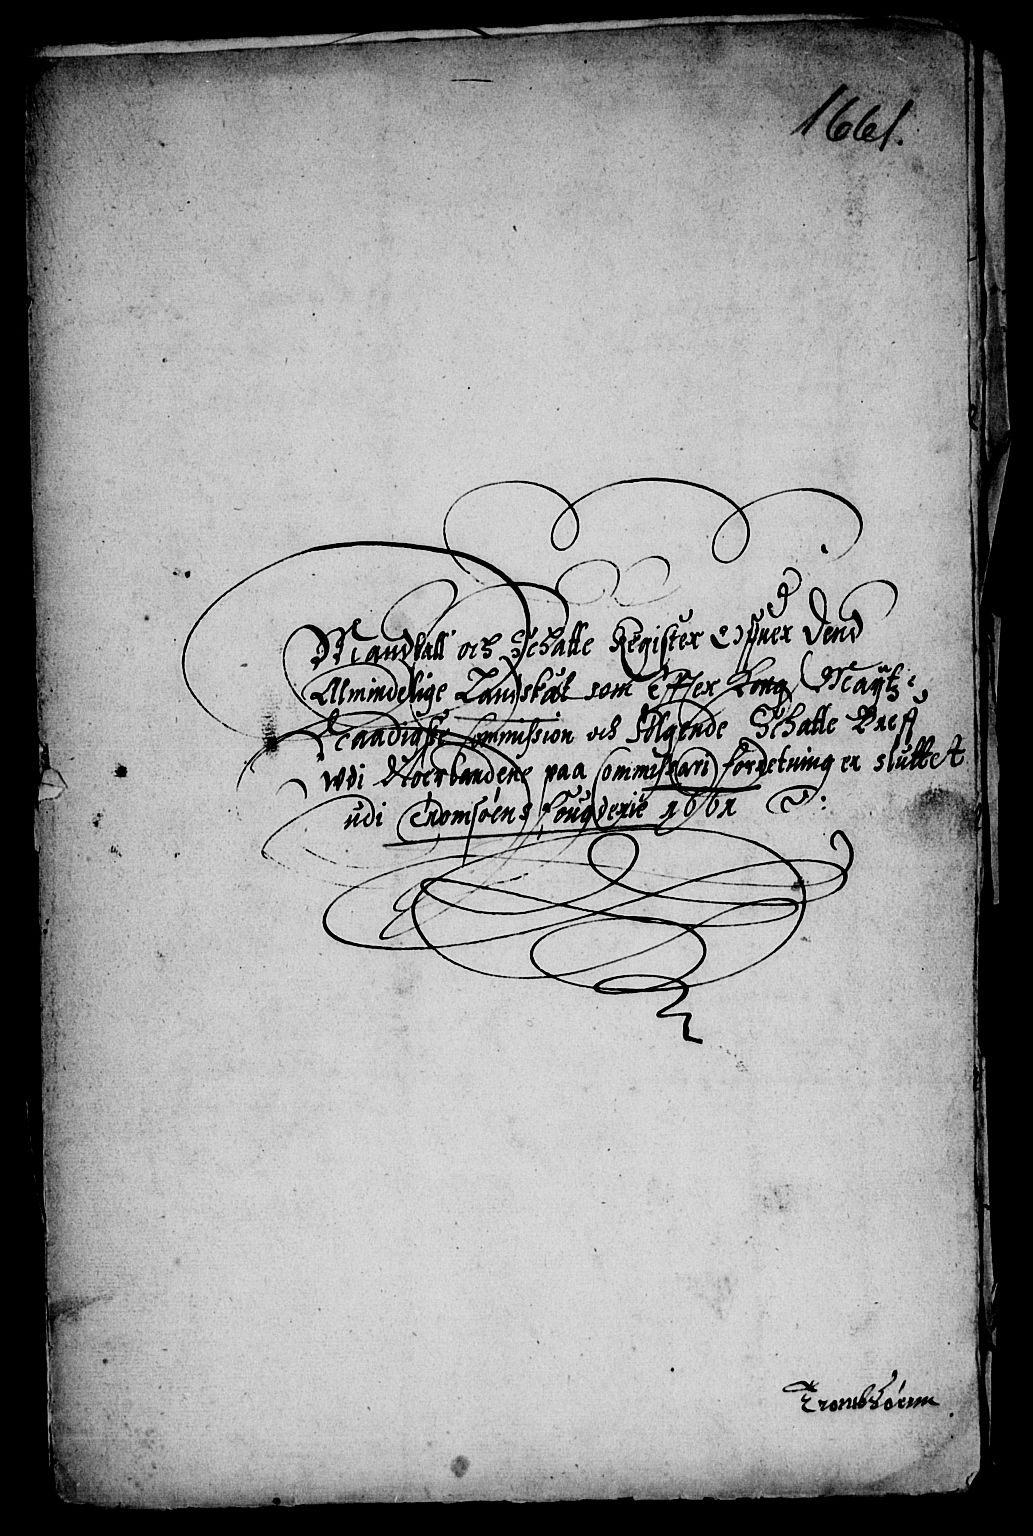 1661.
Mandtall och Schatte Register Offuer Dend
Allmindelige Landskat som Effter Kong: Maÿtz:
Naadigste Commission och følgende Schatte Breff
udi Noerlandene paa Commissari forretning er sluttet
udi Tromsøens fougderie 1661
Trombsøenn